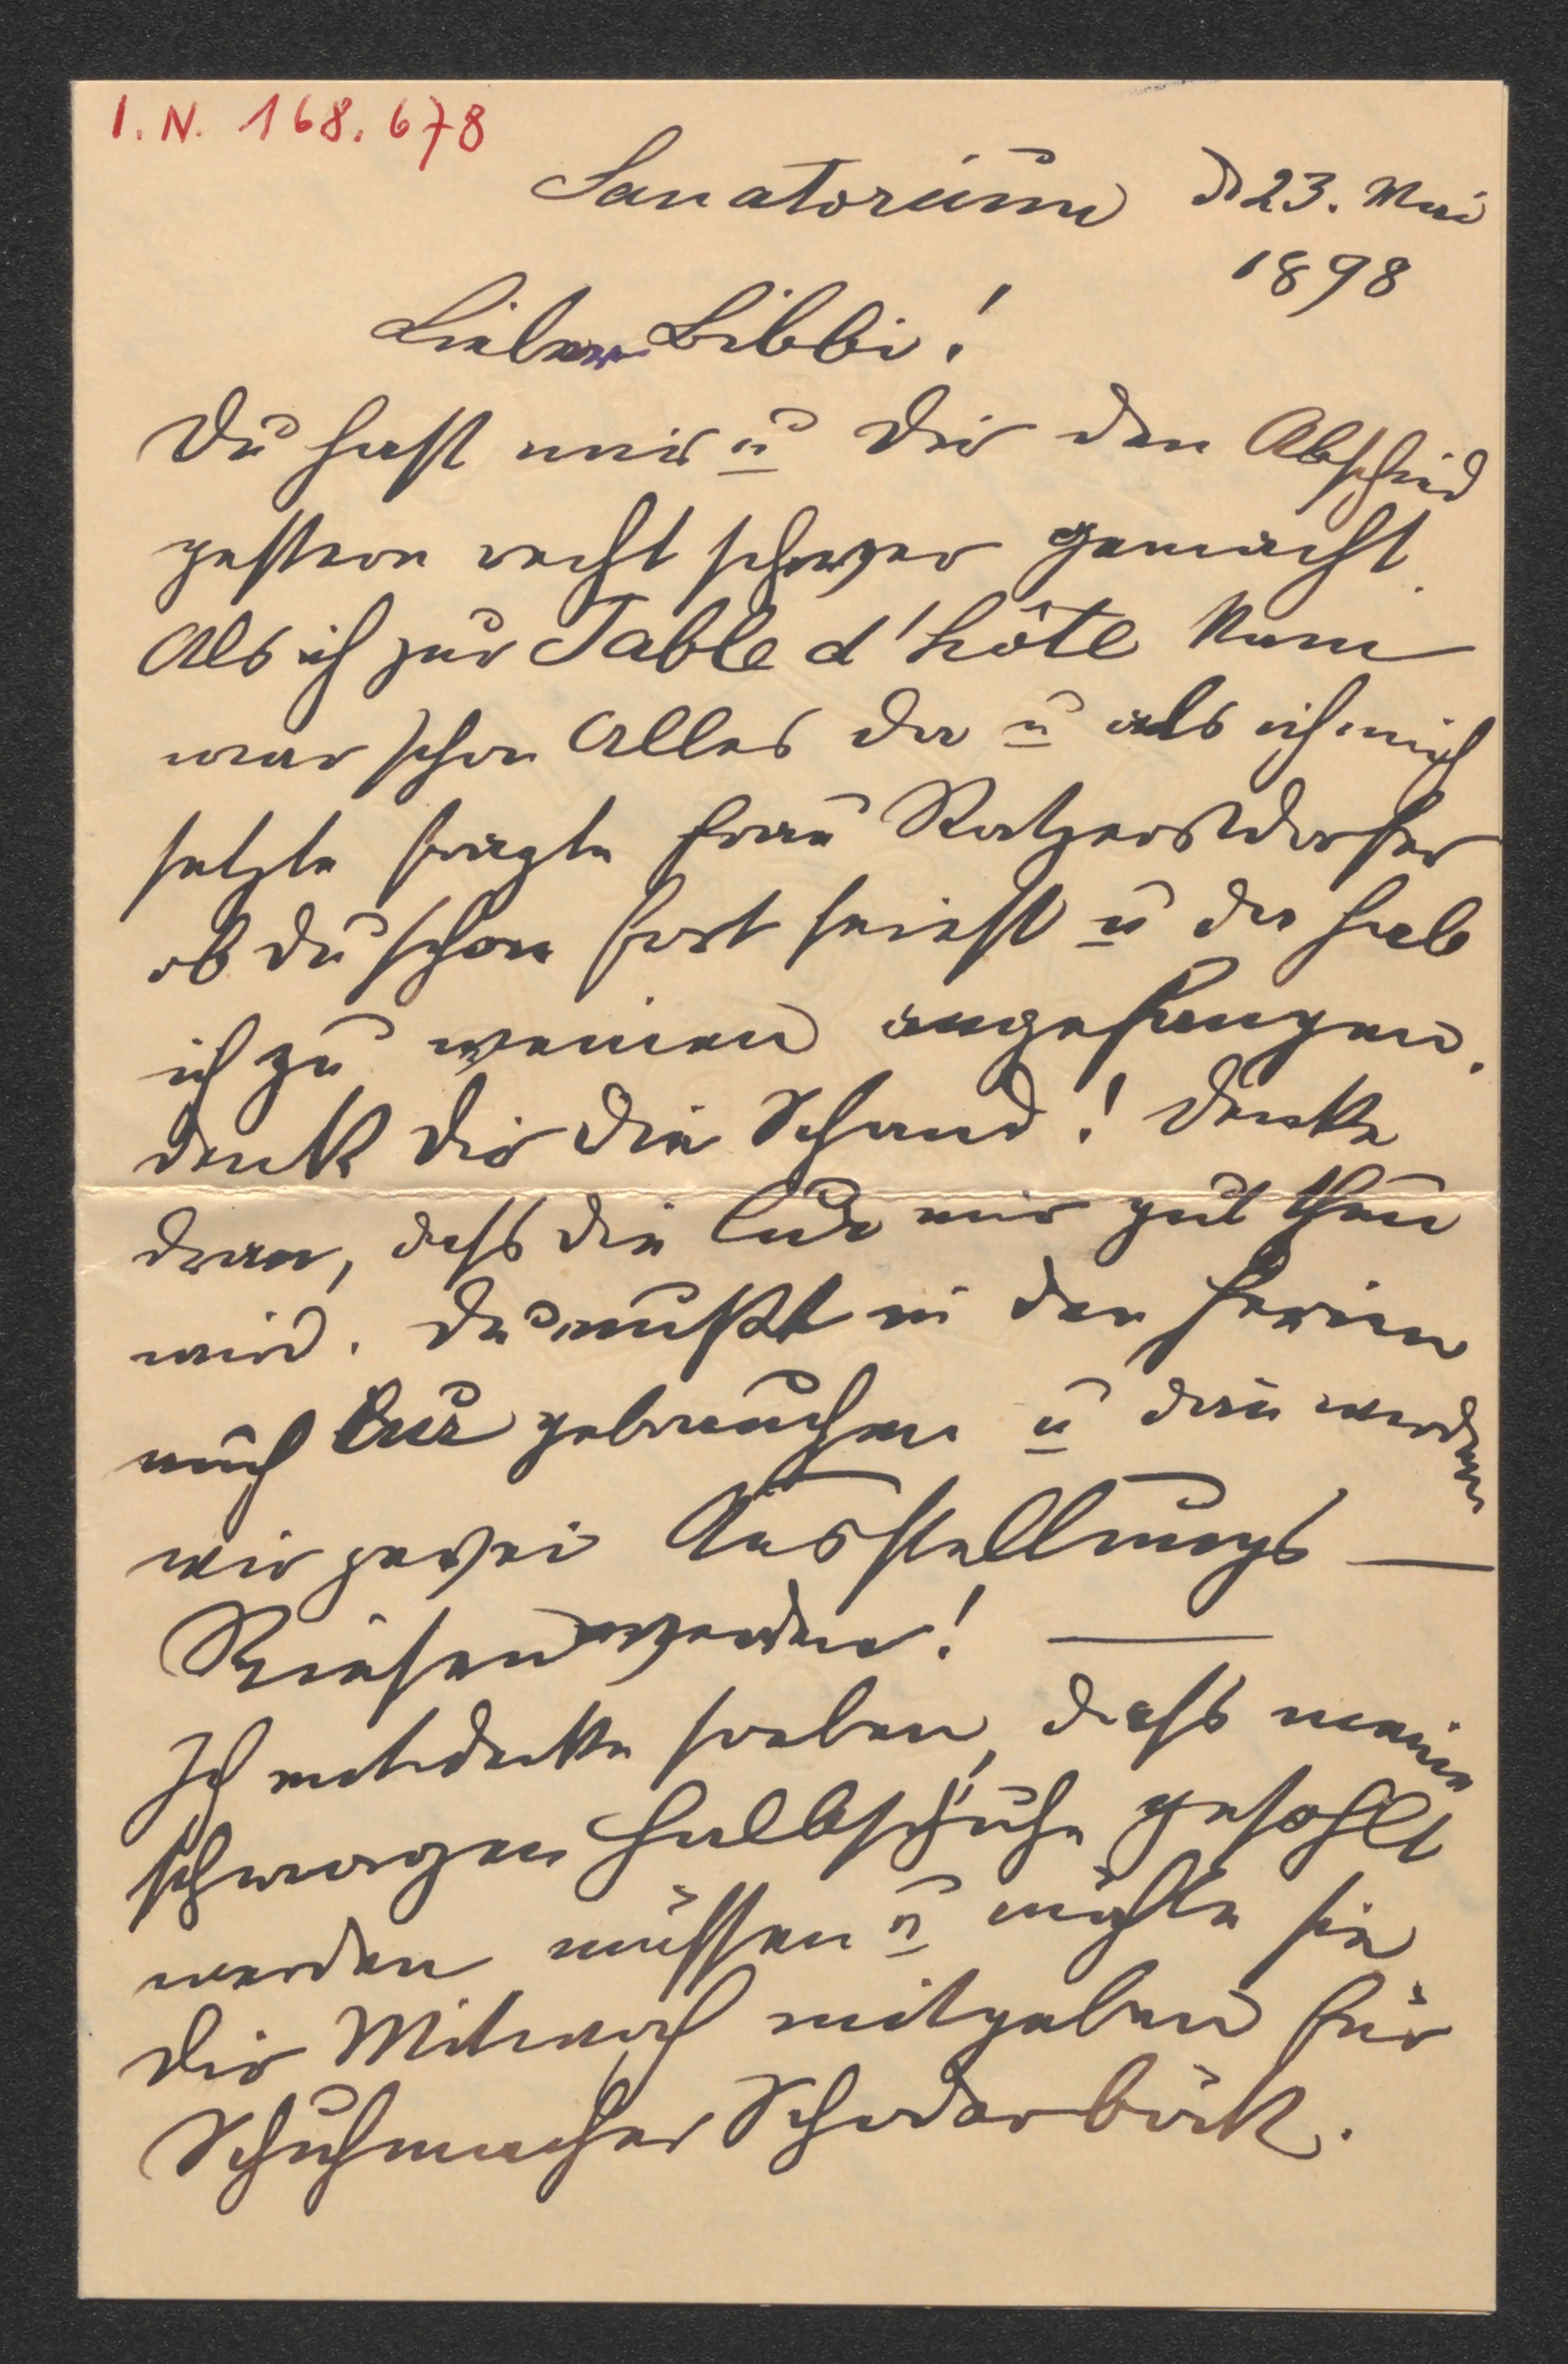 I. N. 168.678
Sanatorium d 23. Mai
1898
Lieber Bibbi!
Du hast mir u Dir den Abschied
gestern recht schwer gemacht.
Als ich zur Table d'hôte kam
war schon Alles da u als ich mich
setzte fragte Frau Ratzersdorfer
ob Du schon fort seiest u da hab
ich zu weinen angefangen.
denk Dir die Schand! Denke
dran, dass die Cur mir gut thun
wird. Du mußt in den Ferien
auch Cur gebrauchen u dan werden
wir zwei Ausstellungs—
Riesen werden! —
Ich entdecke soeben, dass meine
schwarzen Halbschuhe gesohlt
werden müssen u möchte sie
Dir Mitwoch mitgeben für
Schuhmacher Schoderböck.